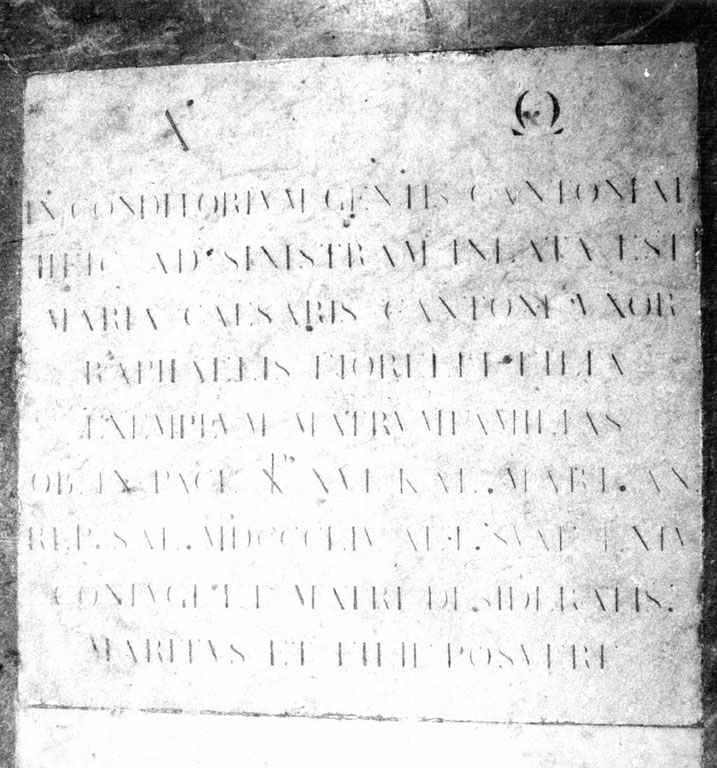 A Ω
IN CONDITORIVM GENTIS CANTONIAE
HEIC AD SINISTRAM INLATA EST
MARIA CAESARIS CANTONI VXOR
RAPHAELIS FIORELLI FILIA
EXEMPLVM MATRVMFAMILIAS
OB. IN PACE XVI KAL. MART. AN.
REP. SAL. MDCCCLIV AET. SVAE LXIV
CONIVGI ET MATRI DESIDERATIS.
MARITVS ET FILII POSVERE